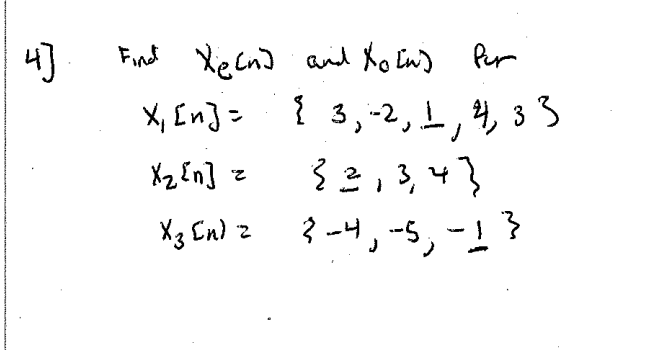 4] Find Xe[n] and Xo[n] for
X₁[n] = { 3, -2, 1, 4, 3 }
X₂[n] = { 2, 3, 4 }
X₃[n] = { -4, -5, -1 }